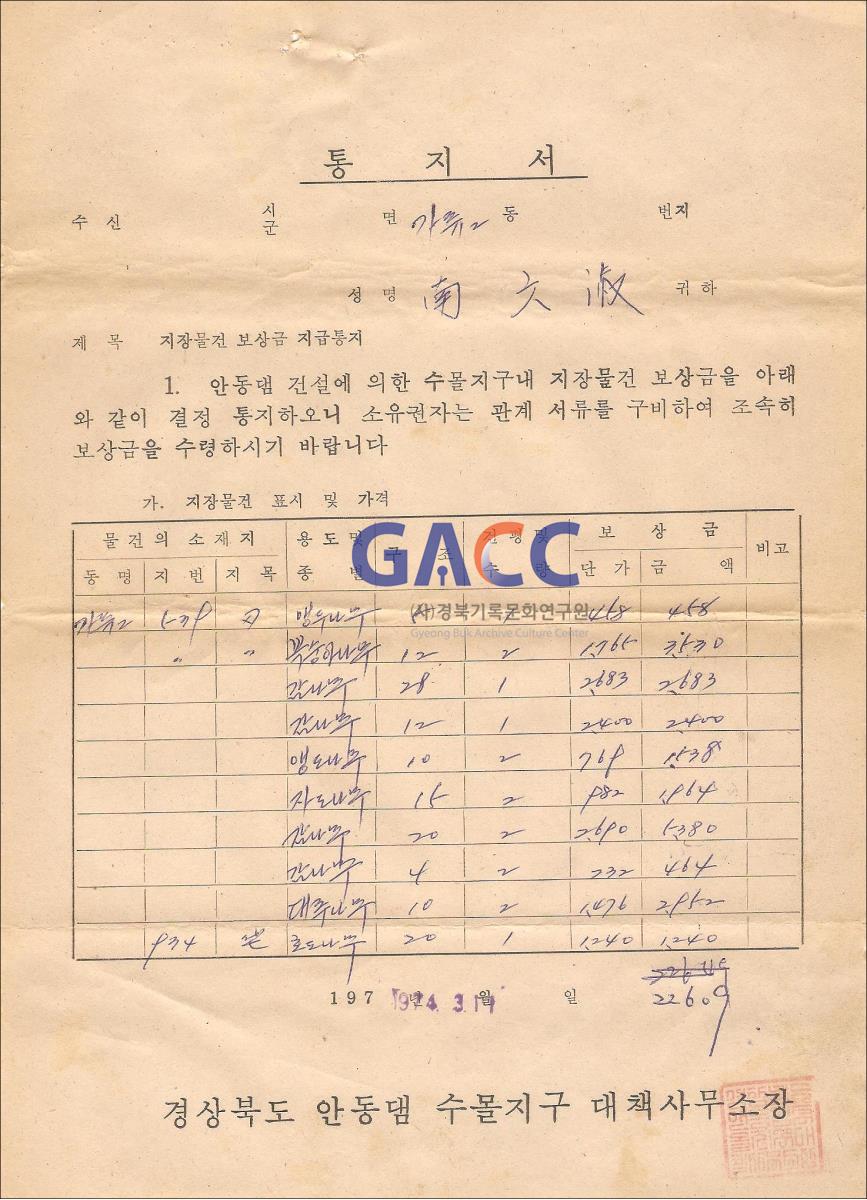 통 지 서
수 신 시 군 면 가류2 동 번지
성 명 南 六 淑 귀 하
제 목 지장물건 보상금 지급통지
1. 안동댐 건설에 의한 수몰지구내 지장물건 보상금을 아래
와 같이 결정 통지하오니 소유권자는 관계 서류를 구비하여 조속히
보상금을 수령하시기 바랍니다
가. 지장물건 표시 및 가격
물건의 소재지 용도및 종별 구 조 건평및 수량 보 상 금 비고
동 명 지 번 지 목 단 가 금 액
GACC
(사)경북기록문화연구원
Gyeong Buk Archive Culture Center
가류2 앵두나무 458
〃 〃 복숭아나무 12 2 1,765 3,530
감나무 28 1 2,683 2,683
감나무 12 1 2,400 2,400
앵도나무 10 2 769 1,538
자도나무 15 2 982 1,964
감나무 20 2 2,690 5,380
감나무 4 2 232 464
대추나무 10 2 1,476 2,952
934 호도나무 20 1 1,240 1,240
22609
197 년 월 일
1974. 3.
경상북도 안동댐 수몰지구 대책사무소장